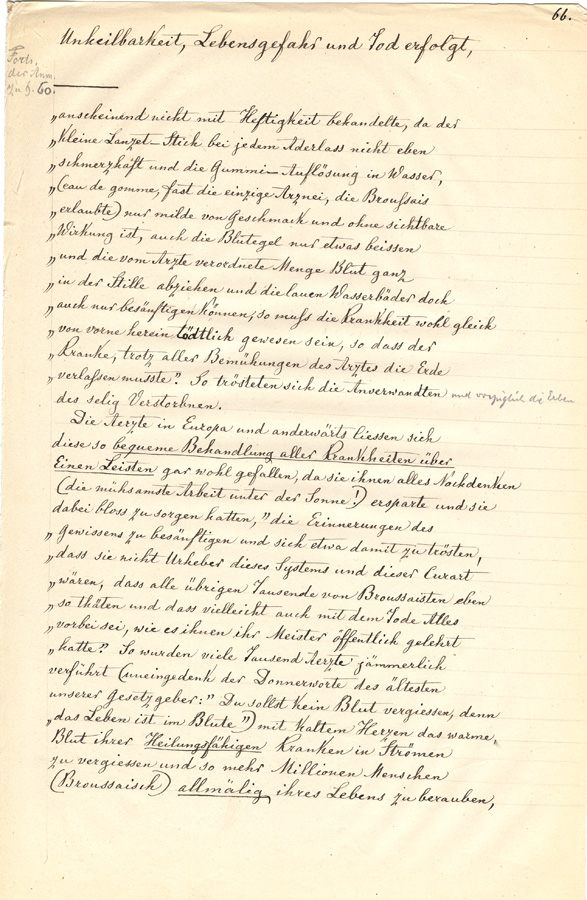 66.
Unheilbarkeit, Lebensgefahr und Tod erfolgt,
Forts.
der Anm.
zu §. 60.
„anscheinend nicht mit Heftigkeit behandelte, da der
„kleine Lanzet-Stich bei jedem Aderlass nicht eben
„schmerzhaft und die Gummi-Auflösung in Wasser,
„(eau de gomme, fast die einzige Arznei, die Broussais
„erlaubte) nur milde von Geschmack und ohne sichtbare
„Wirkung ist, auch die Blutegel nur etwas beissen
„und die vom Arzte verordnete Menge Blut ganz
„in der Stille abziehen und die lauen Wasserbäder doch
„auch nur besänftigen können, so muss die Krankheit wohl gleich
„von vorne herein tödtlich gewesen sein, so dass der
„Kranke, trotz aller Bemühungen des Arztes die Erde
„verlassen musste". So trösteten sich die Anverwandten und vorzüglich die Erben
des selig Verstorbnen.
Die Aerzte in Europa und anderwärts liessen sich
diese so bequeme Behandlung aller Krankheiten über
Einen Leisten gar wohl gefallen, da sie ihnen alles Nachdenken
(die mühsamste Arbeit unter der Sonne!) ersparte und sie
dabei bloss zu sorgen hatten, "die Erinnerungen des
„Gewissens zu besänftigen und sich etwa damit zu trösten,
„dass sie nicht Urheber dieses Systems und dieser Curart
„wären, dass alle übrigen Tausende von Broussaisten eben
„so thäten und dass vielleicht auch mit dem Tode Alles
„vorbei sei, wie es ihnen ihr Meister öffentlich gelehrt
„hatte". So wurden viele Tausend Aerzte jämmerlich
verführt (uneingedenk der Donnerworte des ältesten
unserer Gesetzgeber: "Du sollst kein Blut vergiessen, denn
„das Leben ist im Blute") mit kaltem Herzen das warme,
Blut ihrer Heilungsfähigen Kranken in Strömen
zu vergiessen und so mehr Millionen Menschen
(Broussaisch) allmälig ihres Lebens zu berauben,